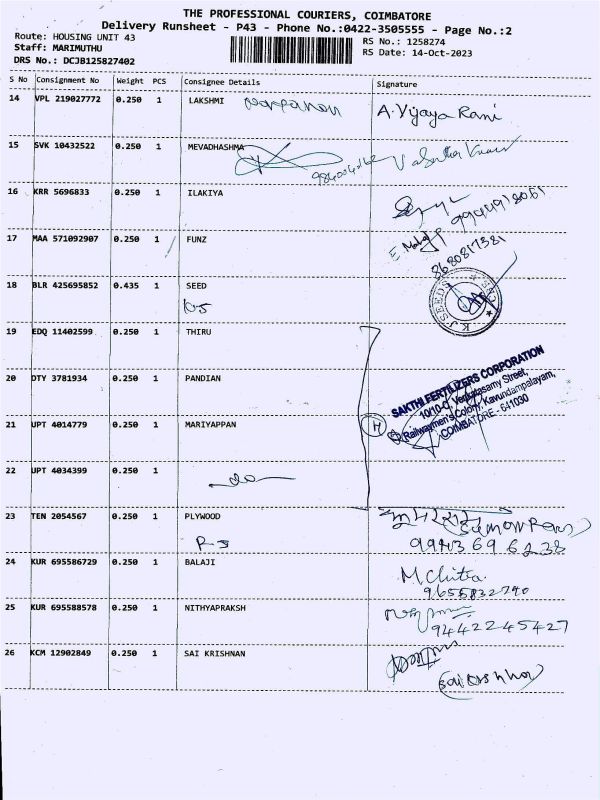 THE PROFESSIONAL COURIERS, COIMBATORE
Delivery Runsheet - P43 - Phone No.:0422-3505555 - Page No.:2
Route: HOUSING UNIT 43
Staff: MARIMUTHU
DRS No.: DCJB125827402
RS No.: 1258274
RS Date: 14-Oct-2023
S No Consignment No Weight PCS Consignee Details Signature
14 VPL 219027772 0.250 1 LAKSHMI A. Vijaya Rani
15 SVK 10432522 0.250 1 MEVADHASHMA
16 KRR 5696833 0.250 1 ILAKIYA
17 MAA 571092907 0.250 1 FUNZ
8680817381
18 BLR 425695852 0.435 1 SEED
KJ SEEDS CBE
19 EDQ 11402599 0.250 1 THIRU
20 DTY 3781934 0.250 1 PANDIAN
SAKTHI FERTILIZERS CORPORATION
10/10-C, Venkatasamy Street,
Railwaymen's Colony, Kavundampalayam,
COIMBATORE - 641030
21 UPT 4014779 0.250 1 MARIYAPPAN
22 UPT 4034399 0.250 1
23 TEN 2054567 0.250 1 PLYWOOD
24 KUR 695586729 0.250 1 BALAJI M. Chitra
9655832790
25 KUR 695588578 0.250 1 NITHYAPRAKSH
9442245427
26 KCM 12902849 0.250 1 SAI KRISHNAN